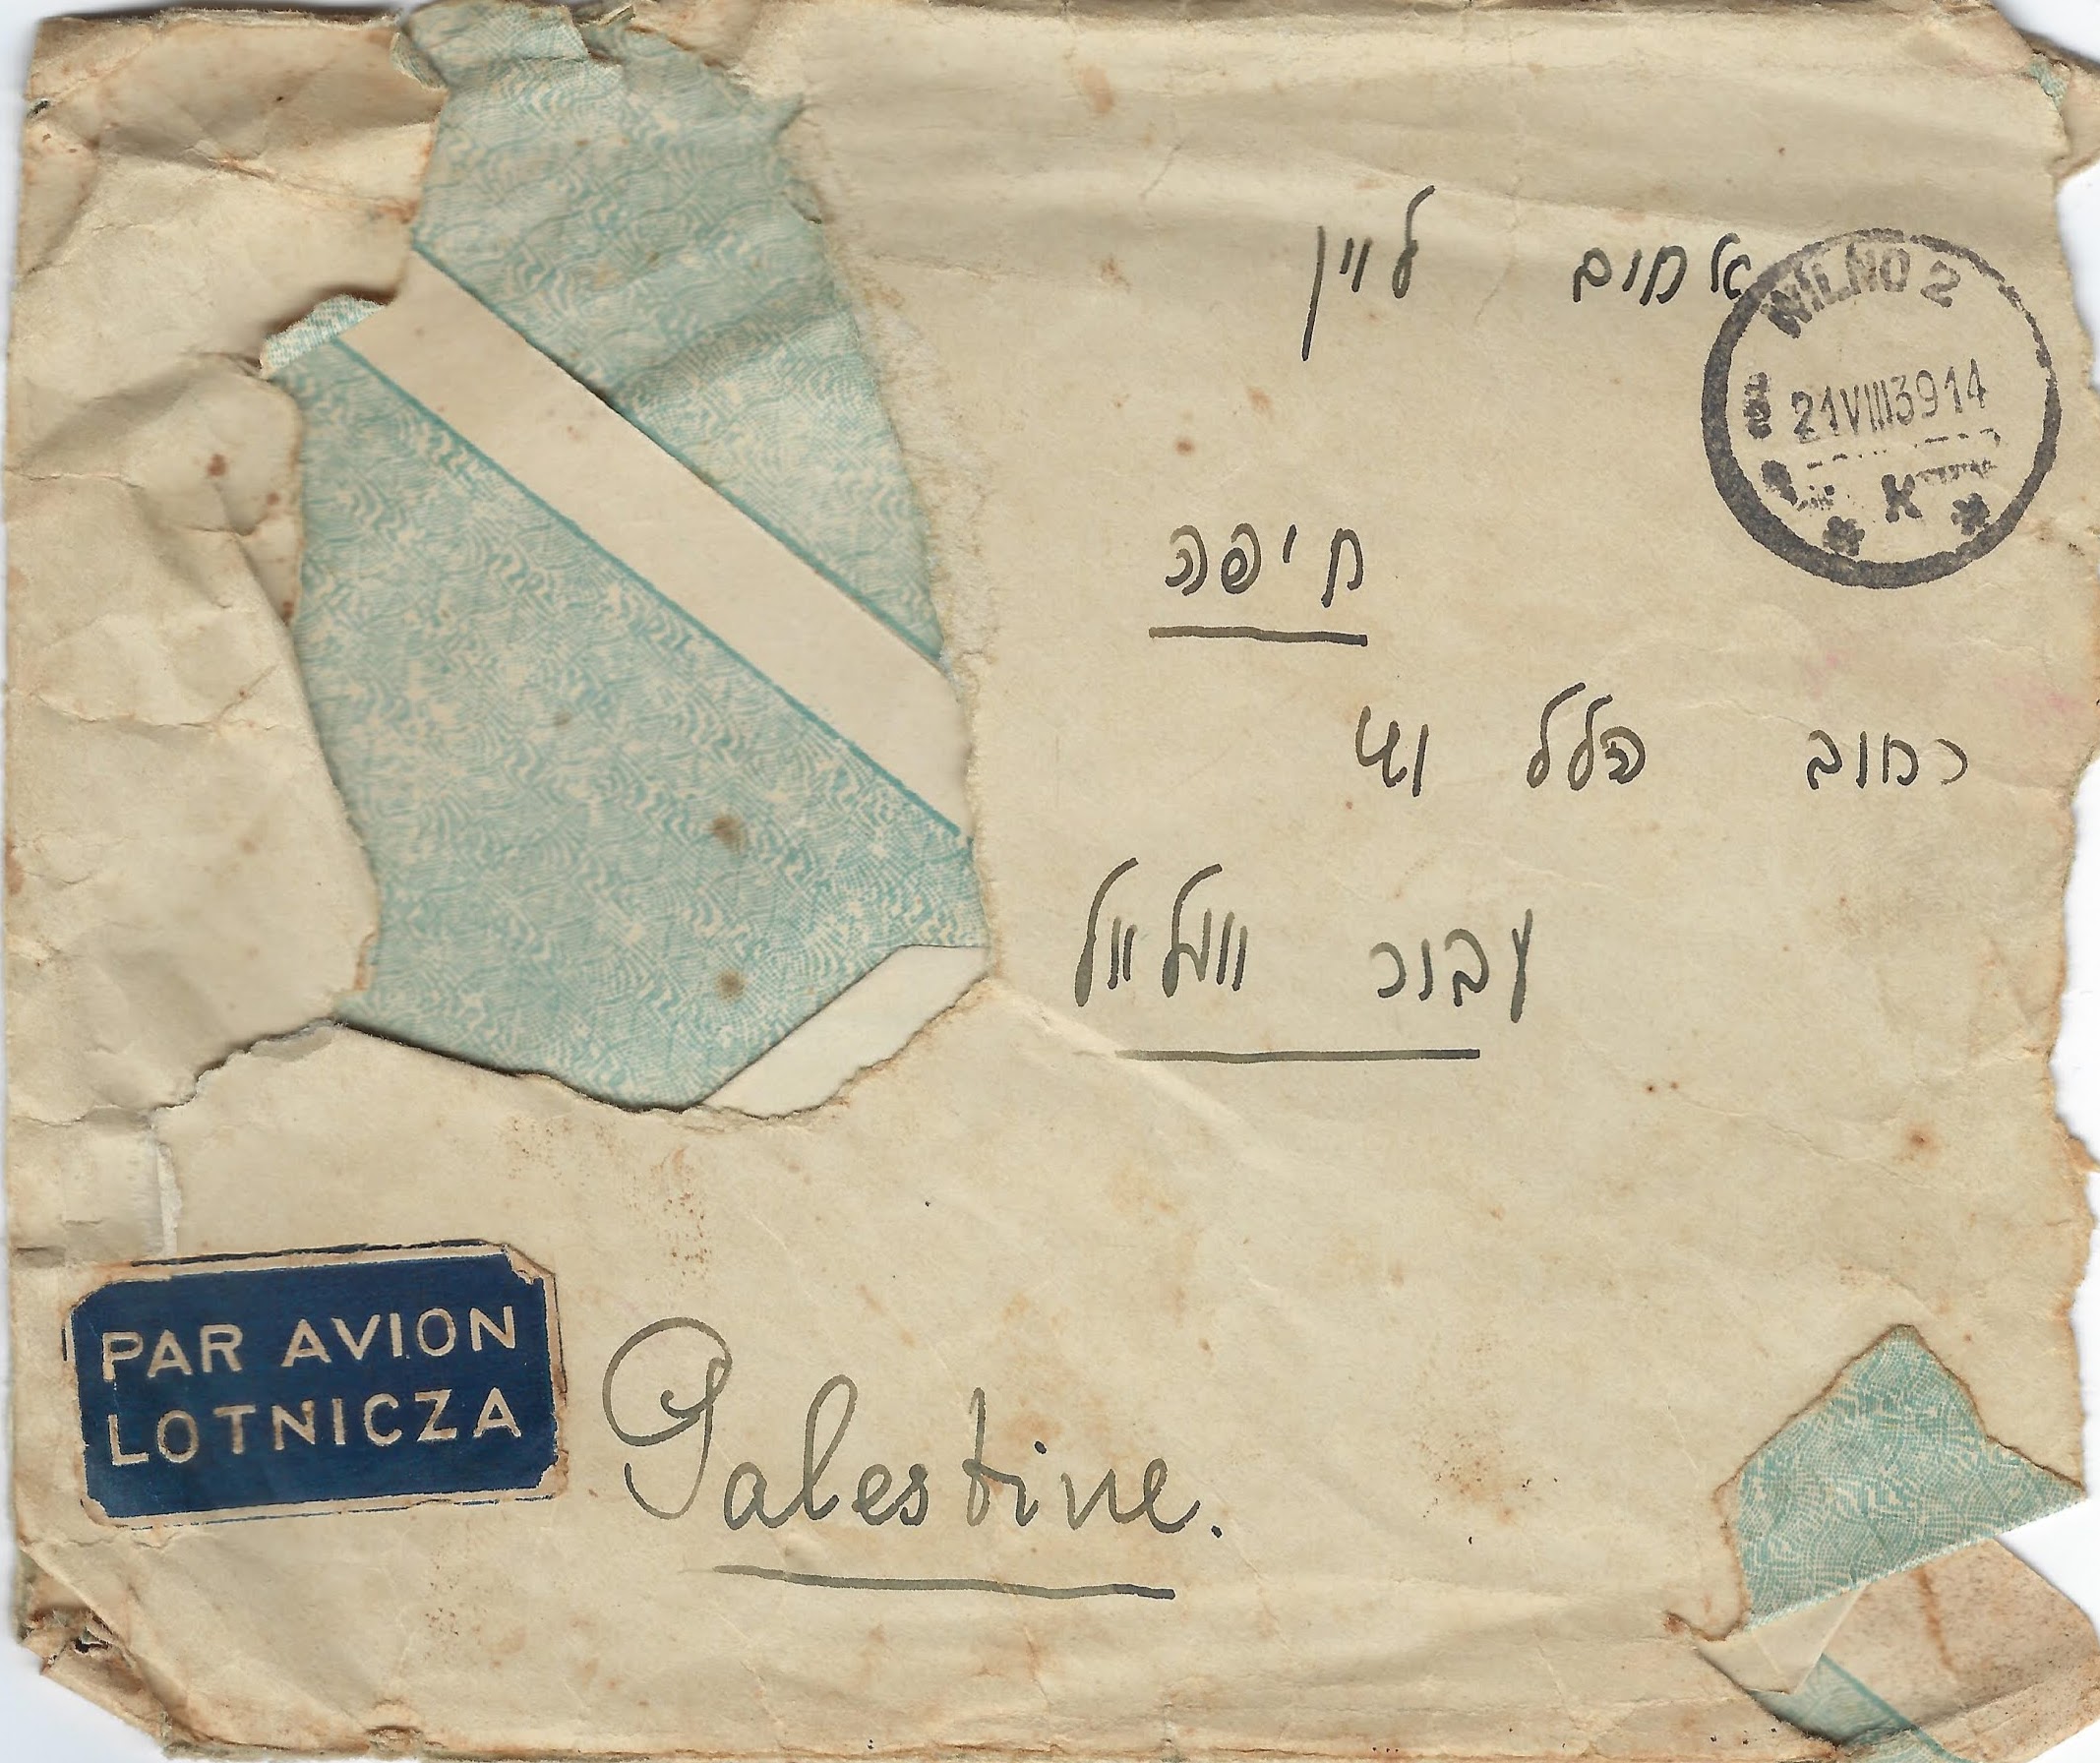 לוין
WILNO 2
21VIII3914
* K *
חיפה
רחוב הלל
עבור וועלוול
PAR AVION
LOTNICZA
Palestine.